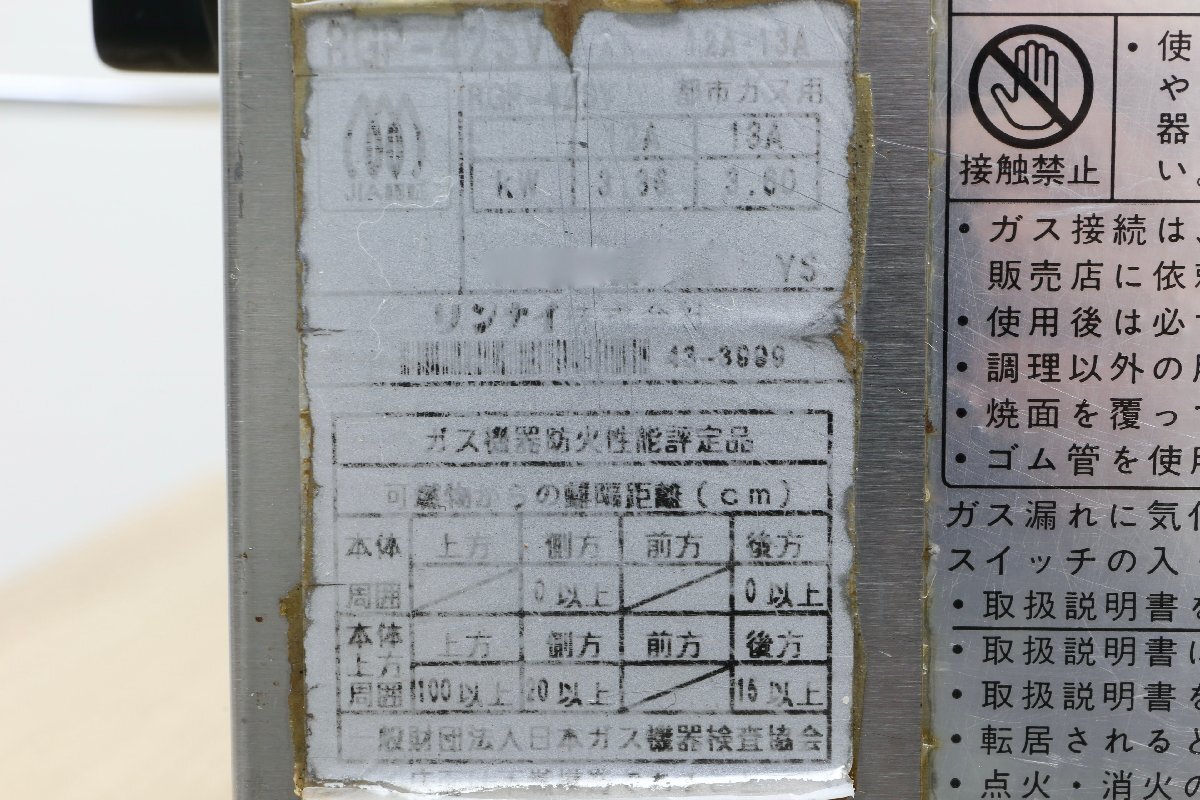 12A・13A
都市ガス用
12A 13A
kW 3.60
YS
リンナイ
43-3699
ガス機器防火性能評定品
可燃物からの離隔距離(cm)
本体周囲 上方 側方 前方 後方
0以上 0以上
本体上方周囲 上方 側方 前方 後方
100以上 20以上 15以上
一般財団法人日本ガス機器検査協会
使
や
器
い。
接触禁止
・ガス接続は、
販売店に依
・使用後は必
・調理以外の
・焼面を覆っ
・ゴム管を使
ガス漏れに気
スイッチの入
・取扱説明書
・取扱説明書
・取扱説明書
・転居されると
・点火・消火の